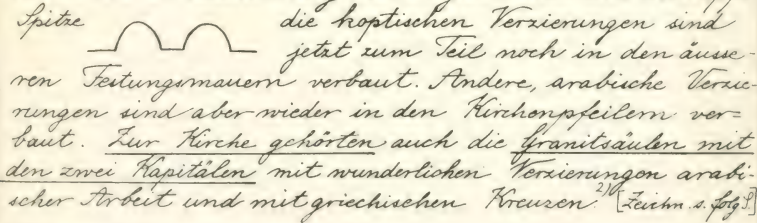 Spitze die koptischen Verzierungen sind
jetzt zum Teil noch in den äusse-
ren Festungsmauern verbaut. Andere, arabische Verzie-
rungen sind aber wieder in den Kirchenpfeilern ver=
baut. Zur Kirche gehörten auch die Granitsäulen mit
den zwei Kapitälen mit wunderlichen Verzierungen arabi-
scher Arbeit und mit griechischen Kreuzen. 2) [Zeichn. s. folg S.]